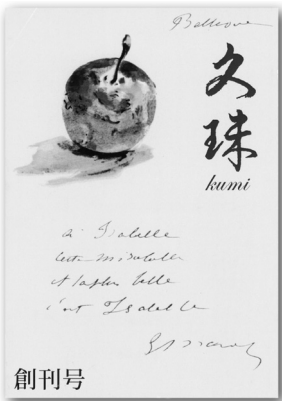 Bellevue
久珠
kumi
à Isabelle
cette mirabelle
et la plus belle
c'est Isabelle
創刊号